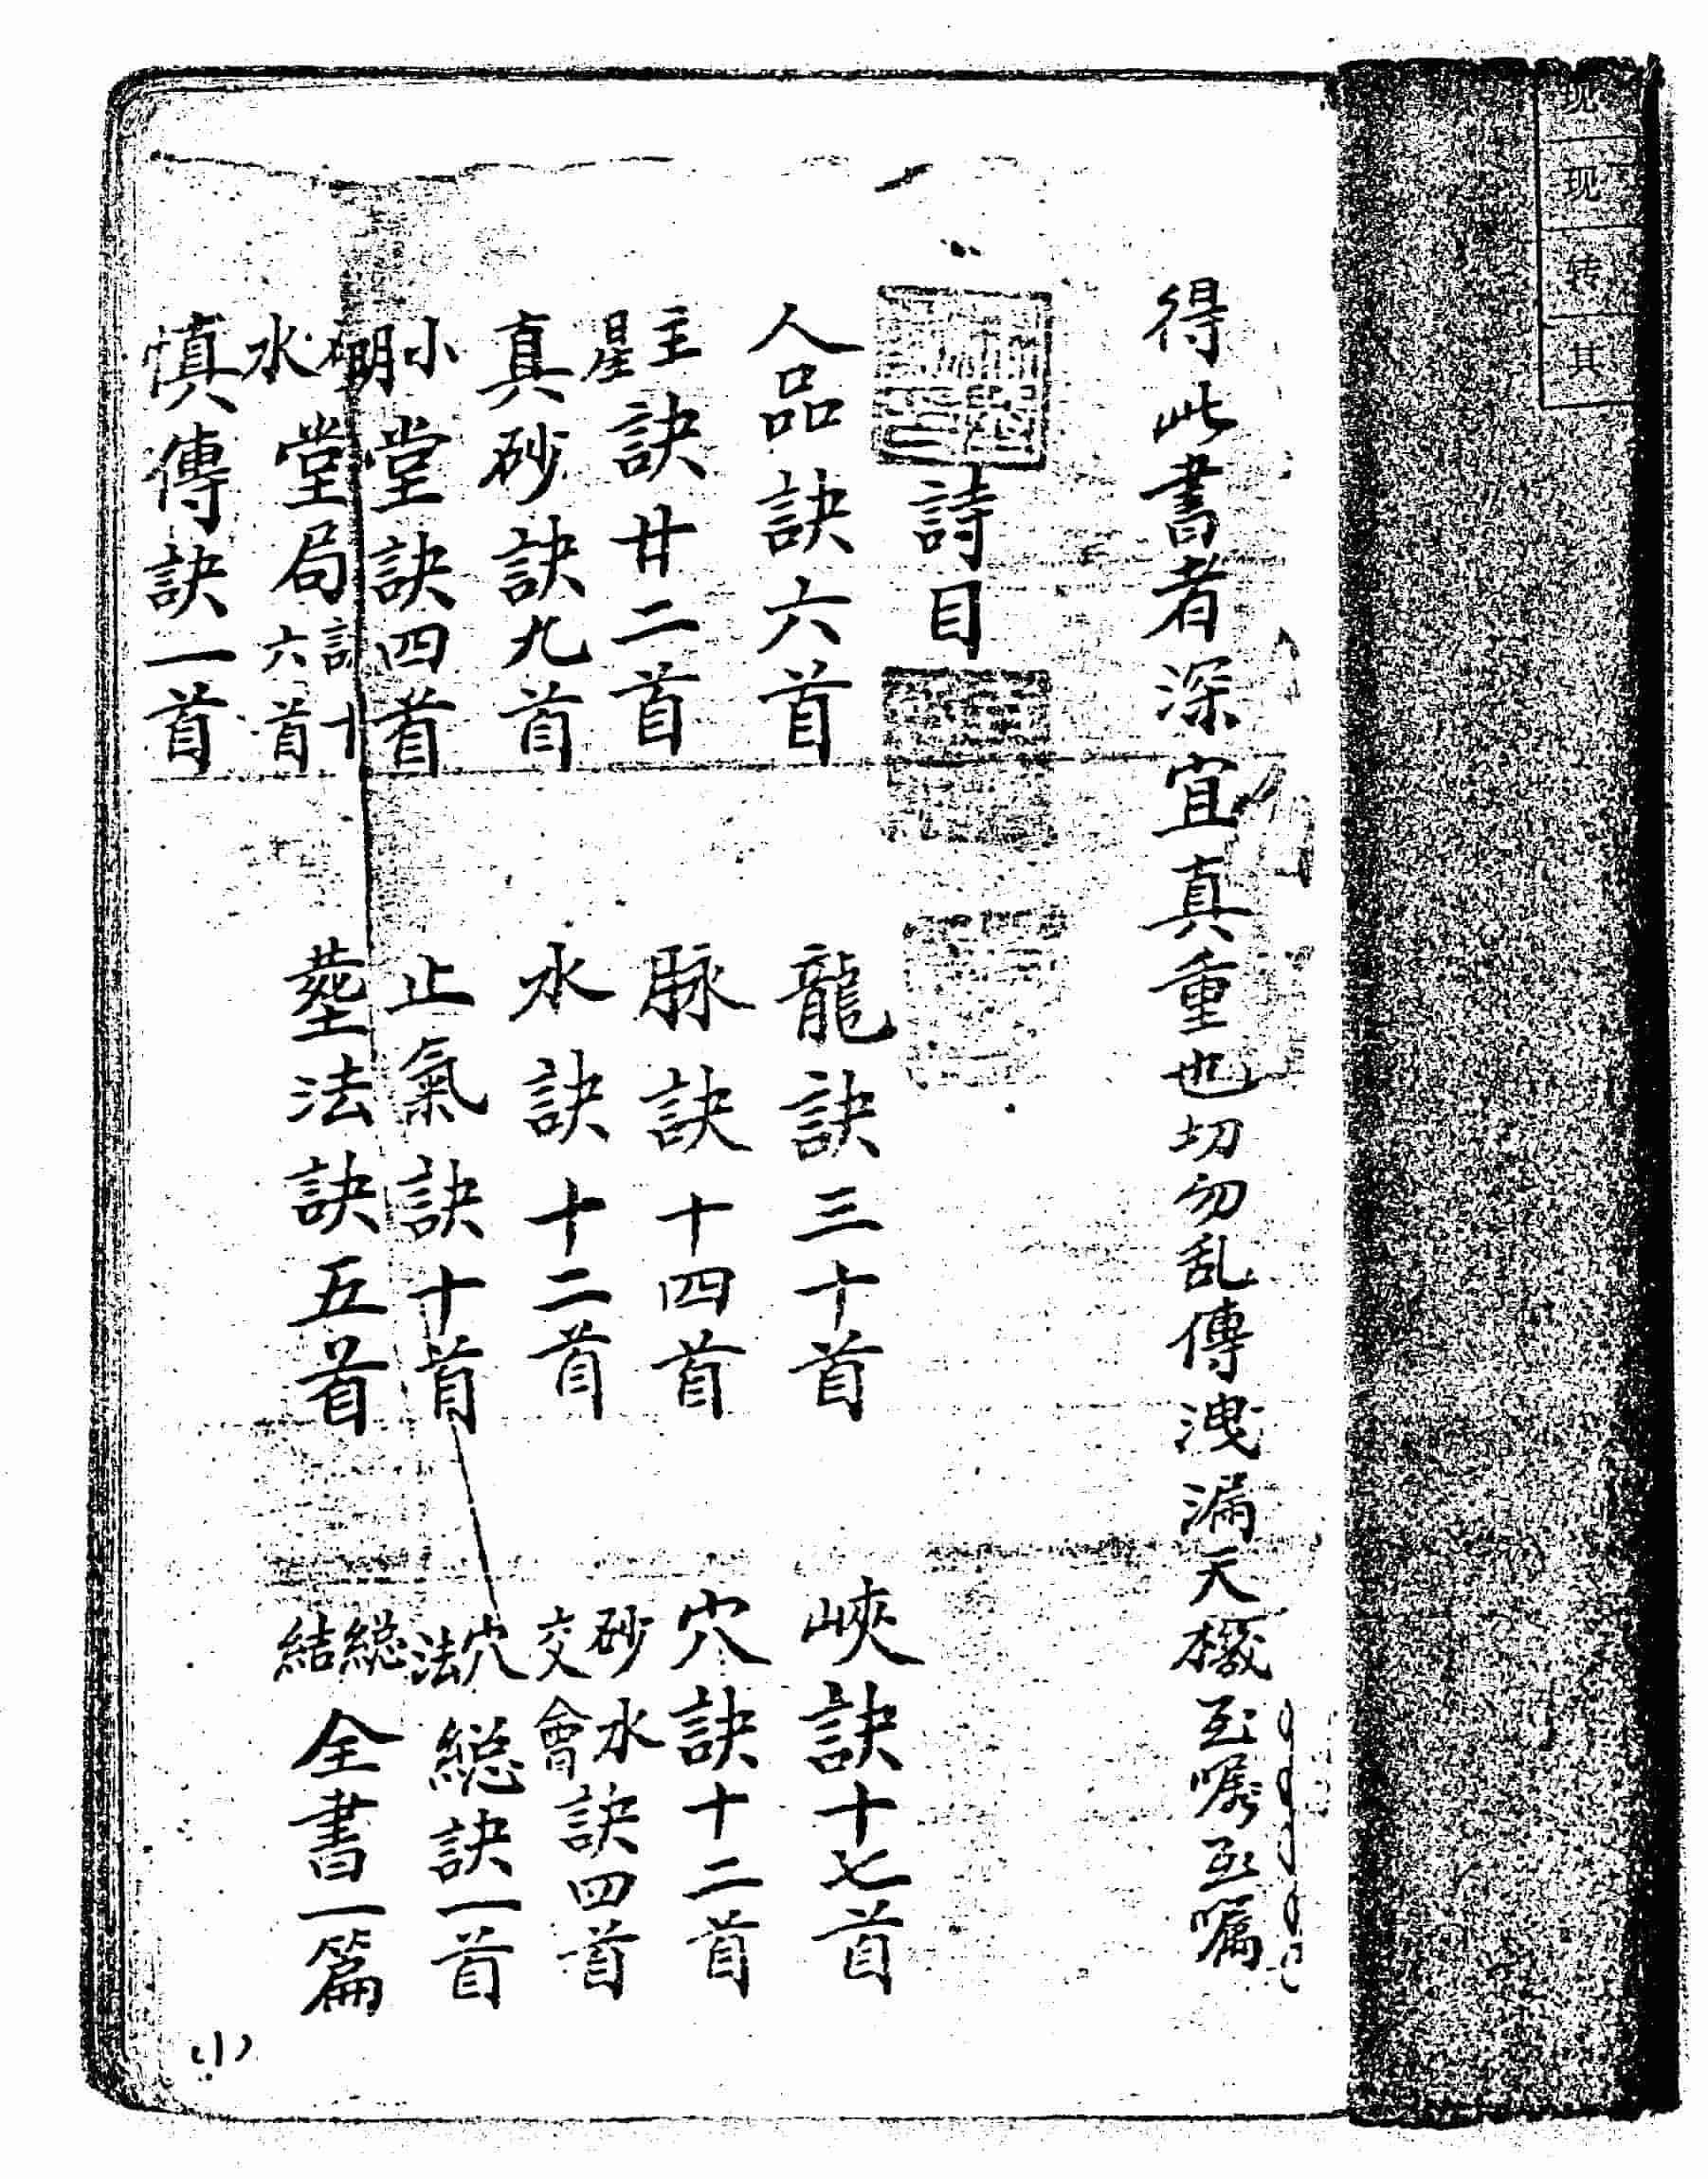 现
现
转
其
得此書者深宜真重也切勿乱傳洩漏天機至嘱至嘱
詩目
人品訣六首
龍訣三十首
峽訣十七首
主星訣廿二首
脉訣十四首
穴訣十二首
真砂訣九首
水訣十二首
砂水交會訣四首
小明堂訣四首
止氣訣十首
穴法總訣一首
水堂局訣十六首
塟法訣五首
總結全書一篇
慎傳訣一首